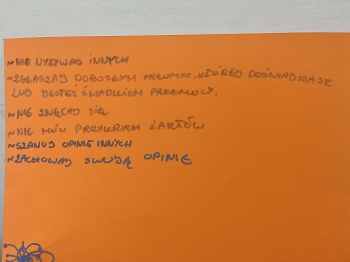 ~NIE WYZYWAJ INNYCH
~ZGŁASZAJ DOROSŁYM PRZEMOC, KTÓREJ DOŚWIADCZASZ
LUB JESTEŚ ŚWIADKIEM PRZEMOCY.
~NIE ZNĘCAJ SIĘ
~NIE MÓW PRZYKRYCH ŻARTÓW
~SZANUJ OPINIE INNYCH
~ZACHOWAJ SWOJĄ OPINIE